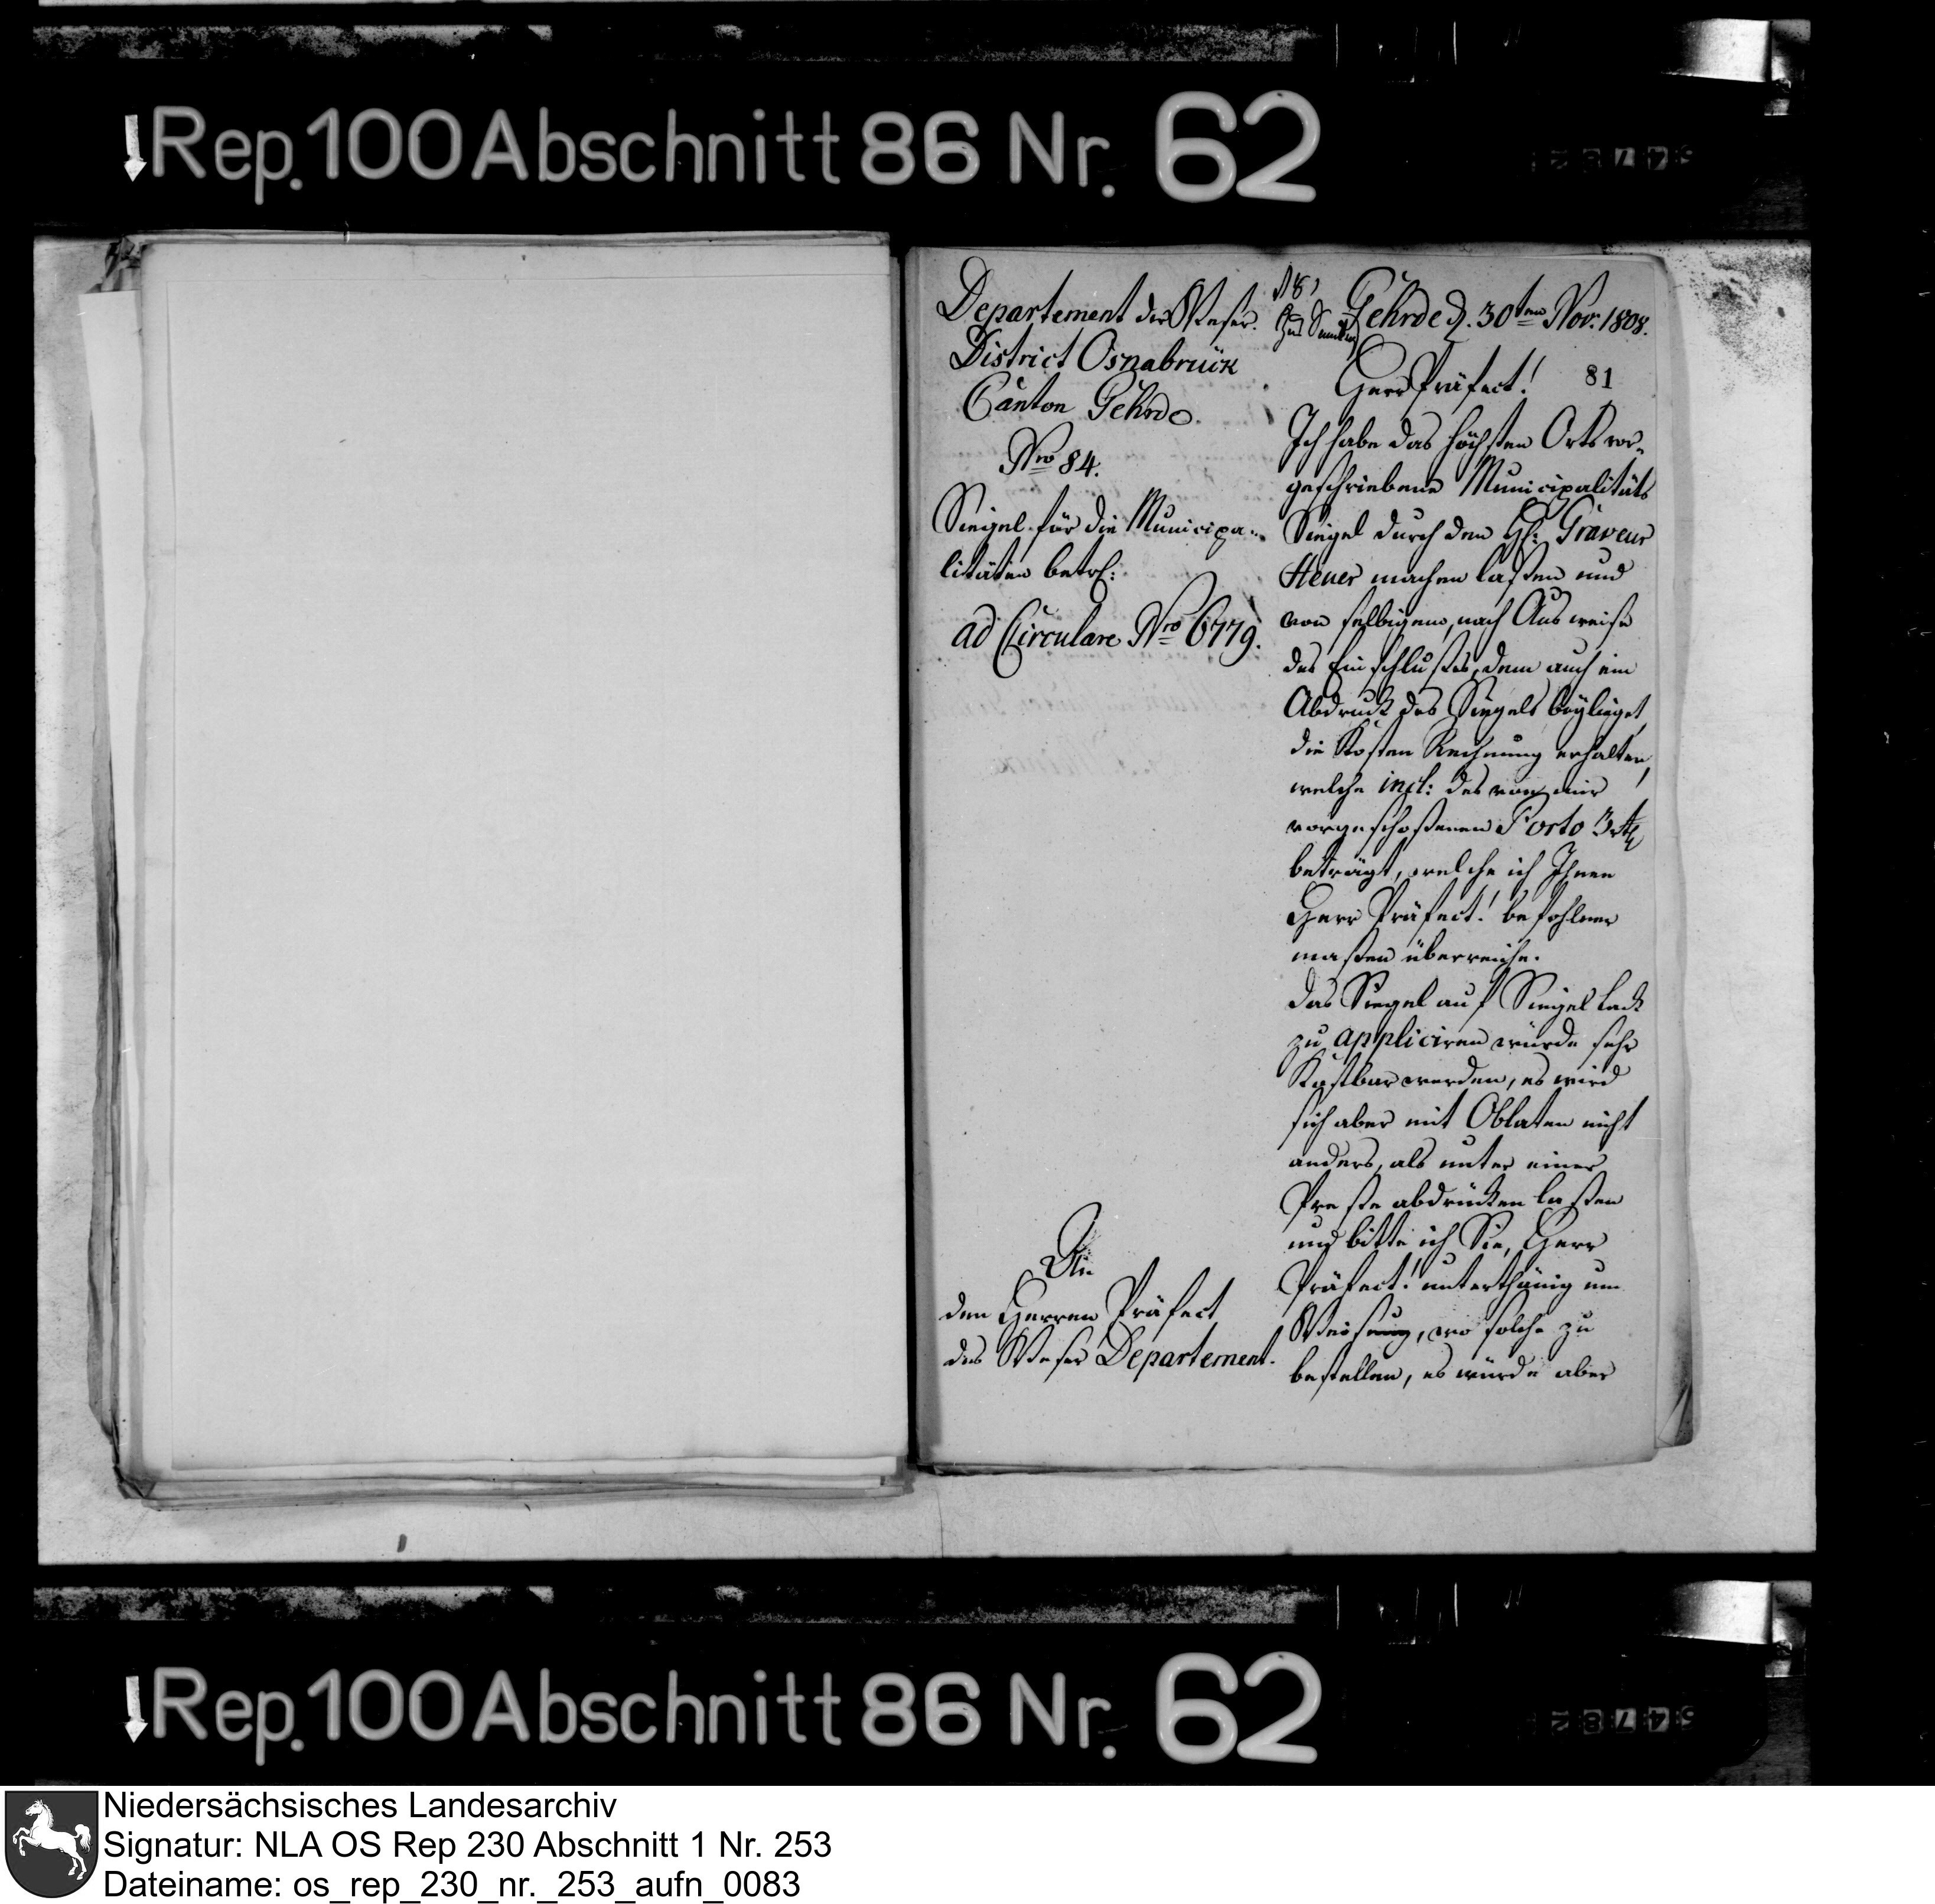 Rep. 100 Abschnitt 86 Nr. 62
Departement der Weser.
District Osnabrück
Canton Gehrde.
Nro 84.
Siegel für die Municipa-
litäten betrf:
ad Circulare Nro 6779.
An
den Herren Präfect
des Weser Departement.
Gehrde d. 30ten Nov. 1808.
81
Herr Präfect!
Ich habe das höchsten Orts vor-
geschriebene Municipalitäts
Siegel durch den H: Graveur
Heuer machen laßen und
von selbigem, nach Ausweise
des Einschlußes, dem auch ein
Abdruck des Siegels beylieget,
die Kosten Rechnung erhalten,
welche incl: des von mir
vorgeschoßenen Porto 3 rt
beträgt, welche ich Ihnen
Herr Präfect! befohlener
maßen überreiche.
Das Siegel auf Siegellack
zu appliciren würde sehr
Kostbar werden, es wird
sich aber mit Oblaten nicht
anders, als unter einer
Preße abdrücken laßen
und bitte ich Sie, Herr
Präfect! unterthänig um
Weisung, wo solche zu
bestellen, es würde aber
Rep. 100 Abschnitt 86 Nr. 62
Niedersächsisches Landesarchiv
Signatur: NLA OS Rep 230 Abschnitt 1 Nr. 253
Dateiname: os_rep_230_nr._253_aufn_0083